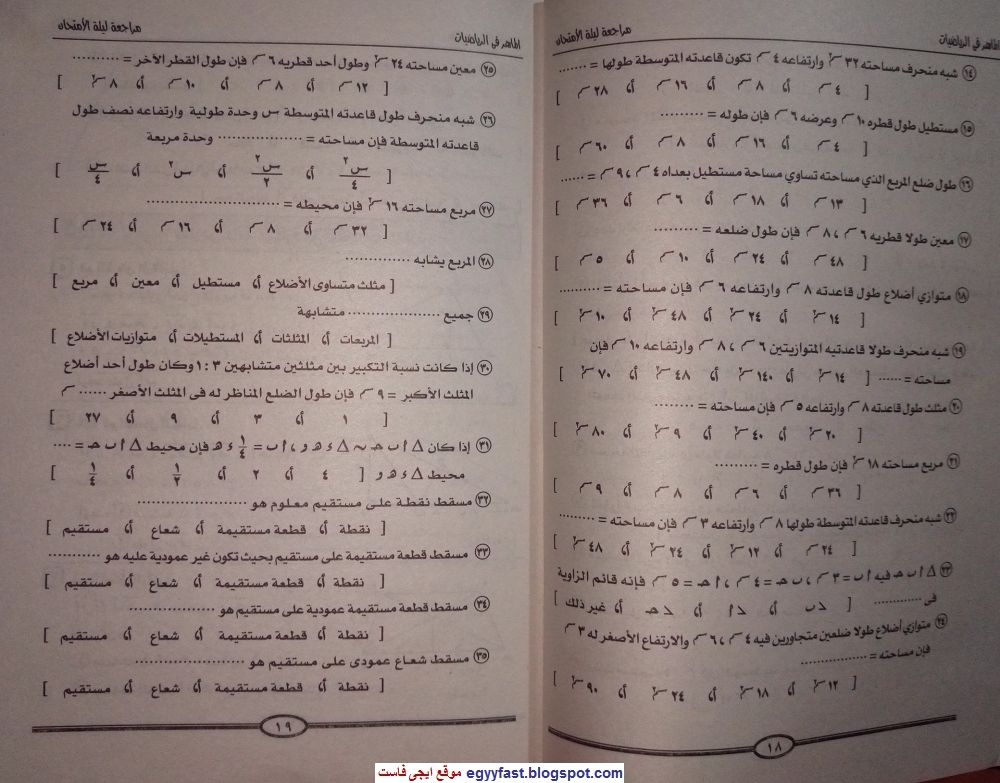 الماهر في الرياضيات
مراجعة ليلة الامتحان
١٤ شبه منحرف مساحته ٣٢ سم٢ وارتفاعه ٤ سم تكون قاعدته المتوسطة طولها = ........
[ ٤ سم أ، ٨ سم أ، ١٦ سم أ، ٢٨ سم ]
١٥ مستطيل طول قطره ١٠ سم وعرضه ٦ سم فإن طوله = ..........
[ ٤ سم أ، ١٦ سم أ، ٨ سم أ، ٦٠ سم ]
١٦ طول ضلع المربع الذي مساحته تساوي مساحة مستطيل بعداه ٤ سم ، ٩ سم = ......
[ ١٣ سم أ، ١٨ سم أ، ٦ سم أ، ٣٦ سم ]
١٧ معين طولا قطريه ٦ سم ، ٨ سم فإن طول ضلعه = .........
[ ٤٨ سم أ، ٢٤ سم أ، ١٠ سم أ، ٥ سم ]
١٨ متوازي أضلاع طول قاعدته ٨ سم وارتفاعه ٦ سم فإن مساحته = ..........
[ ١٤ سم٢ أ، ٢٤ سم٢ أ، ٤٨ سم٢ أ، ١٠ سم٢ ]
١٩ شبه منحرف طولا قاعدتيه المتوازيتين ٦ سم ، ٨ سم وارتفاعه ١٠ سم فإن
مساحته = ...... [ ١٤ سم٢ أ، ١٤٠ سم٢ أ، ٤٨ سم٢ أ، ٧٠ سم٢ ]
٢٠ مثلث طول قاعدته ٨ سم وارتفاعه ٥ سم فإن مساحته = .........
[ ٢٠ سم٢ أ، ٤٠ سم٢ أ، ٩ سم٢ أ، ٨٠ سم٢ ]
٢١ مربع مساحته ١٨ سم٢ فإن طول قطره = ..........
[ ٣٦ سم أ، ٦ سم أ، ٨ سم أ، ٩ سم ]
٢٢ شبه منحرف قاعدته المتوسطة طولها ٨ سم وارتفاعه ٣ سم فإن مساحته = .........
[ ٢٤ سم أ، ١٢ سم٢ أ، ٢٤ سم٢ أ، ٤٨ سم٢ ]
٢٣ △ ا ب حـ فيه ا ب = ٣ سم ، ب حـ = ٤ سم ، ا حـ = ٥ سم فإنه قائم الزاوية
فى ............ [ د ب أ، د ا أ، د حـ أ، غير ذلك ]
٢٤ متوازي أضلاع طولا ضلعين متجاورين فيه ٤ سم ، ٦ سم والارتفاع الأصغر له ٣ سم
فإن مساحته = ..................
[ ١٢ سم٢ أ، ١٨ سم٢ أ، ٢٤ سم٢ أ، ٩٠ سم٢ ]
١٨
الماهر في الرياضيات
مراجعة ليلة الامتحان
٢٥ معين مساحته ٢٤ سم٢ وطول أحد قطريه ٦ سم فإن طول القطر الآخر = ..........
[ ١٢ سم أ، ٨ سم أ، ١٠ سم أ، ٨ سم٢ ]
٢٦ شبه منحرف طول قاعدته المتوسطة س وحدة طولية وارتفاعه نصف طول
قاعدته المتوسطة فإن مساحته = ................ وحدة مربعة
[ س٢/٤ أ، س٢/٢ أ، س٢ أ، س/٤ ]
٢٧ مربع مساحته ١٦ سم٢ فإن محيطه = .........................
[ ٣٢ سم أ، ٨ سم أ، ١٦ سم أ، ٢٤ سم ]
٢٨ المربع يشابه .............
[ مثلث متساوى الأضلاع أ، مستطيل أ، معين أ، مربع ]
٢٩ جميع .................. متشابهة
[ المربعات أ، المثلثات أ، المستطيلات أ، متوازيات الأضلاع ]
٣٠ إذا كانت نسبة التكبير بين مثلثين متشابهين ٣ : ١ وكان طول أحد أضلاع
المثلث الأكبر = ٩ سم فإن طول الضلع المناظر له فى المثلث الأصغر ...... سم
[ ١ أ، ٣ أ، ٩ أ، ٢٧ ]
٣١ إذا كان △ ا ب حـ ~ △ ء هـ و ، ا ب = ١/٤ ء هـ فإن محيط △ ا ب حـ = ....
محيط △ ء هـ و [ ٤ أ، ٢ أ، ١/٢ أ، ١/٤ ]
٣٢ مسقط نقطة على مستقيم معلوم هو .....................
[ نقطة أ، قطعة مستقيمة أ، شعاع أ، مستقيم ]
٣٣ مسقط قطعة مستقيمة على مستقيم بحيث تكون غير عمودية عليه هو ..........
[ نقطة أ، قطعة مستقيمة أ، شعاع أ، مستقيم ]
٣٤ مسقط قطعة مستقيمة عمودية على مستقيم هو .................
[ نقطة أ، قطعة مستقيمة أ، شعاع أ، مستقيم ]
٣٥ مسقط شعاع عمودى على مستقيم هو .....................
[ نقطة أ، قطعة مستقيمة أ، شعاع أ، مستقيم ]
١٩
موقع ايجى فاست egyyfast.blogspot.com